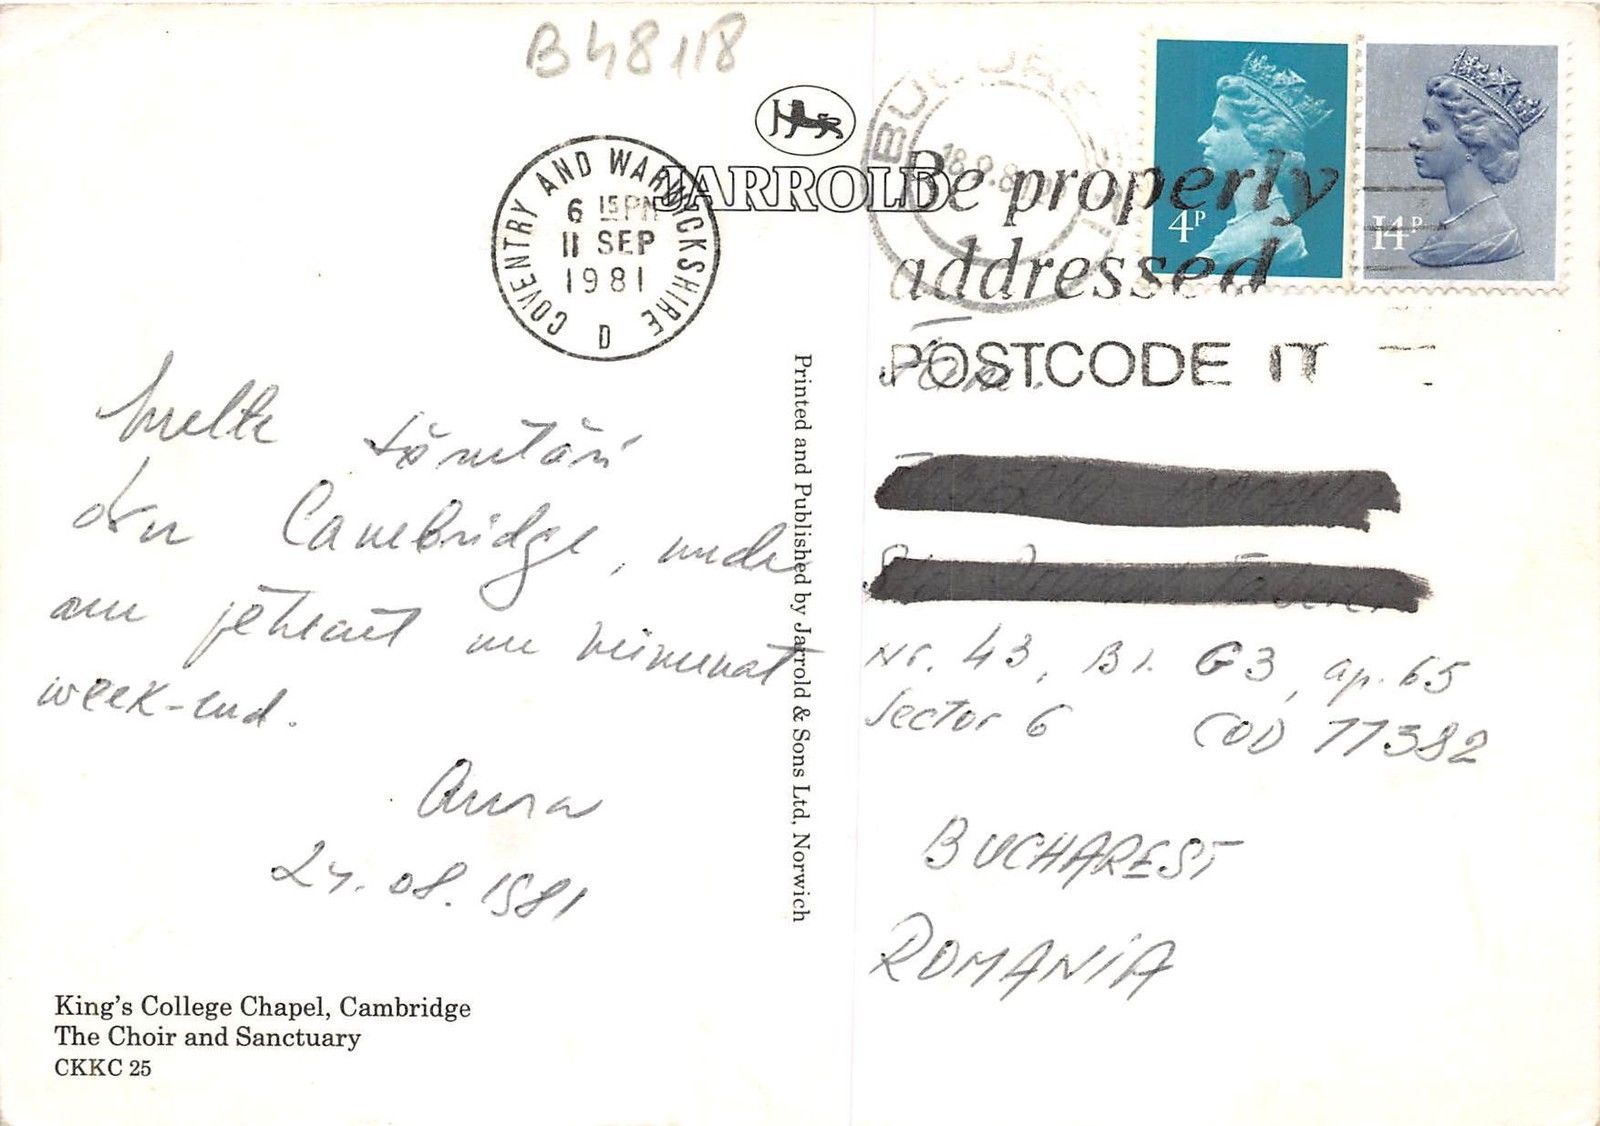 B 48118
JARROLD
COVENTRY AND WARWICKSHIRE
6 15 PM
11 SEP
1981
D
Be properly
addressed
POSTCODE IT
4P
14P
Multe sănătăţi
din Cambridge, unde
am petrecut un minunat
week-end.
Aura
24.08.1981
King's College Chapel, Cambridge
The Choir and Sanctuary
CKKC 25
Printed and Published by Jarrold & Sons Ltd, Norwich
Nr. 43, Bl. G3, ap. 65
Sector 6 COD 77382
BUCHAREST
ROMANIA